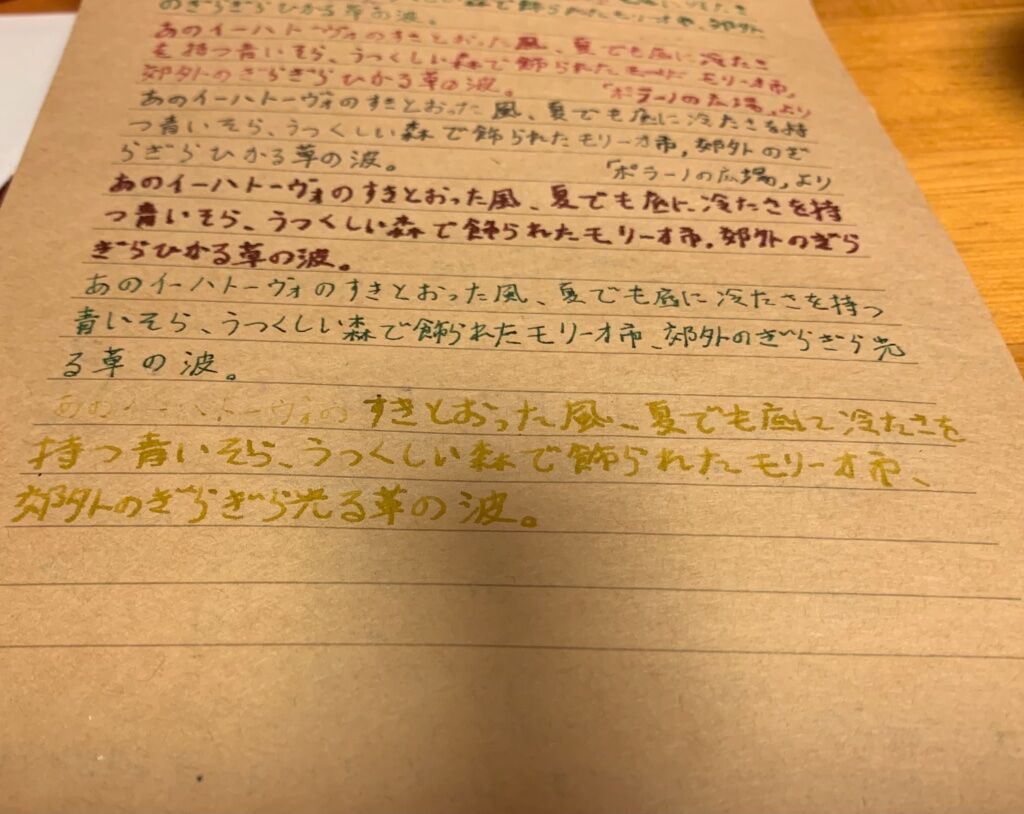 のぎらぎらひかる草の波。 森で飾られたモリーオ市、郊外
あのイーハトーヴォのすきとおった風、夏でも底に冷たさ
を持つ青いそら、うつくしい森で飾られた モリーオ市、
郊外のぎらぎらひかる草の波。 「ポラーノの広場」より
あのイーハトーヴォのすきとおった風、夏でも底に冷たさを持
つ青いそら、うつくしい森で飾られたモリーオ市、郊外のぎ
らぎらひかる草の波。 「ポラーノの広場」より
あのイーハトーヴォのすきとおった風、夏でも底に冷たさを持
つ青いそら、うつくしい森で飾られたモリーオ市、郊外のぎら
ぎらひかる草の波。
あのイーハトーヴォのすきとおった風、夏でも底に冷たさを持つ
青いそら、うつくしい森で飾られたモリーオ市、郊外のぎらぎら光
る草の波。
あのイーハトーヴォのすきとおった風、夏でも底に冷たさを
持つ青いそら、うつくしい森で飾られたモリーオ市、
郊外のぎらぎら光る草の波。